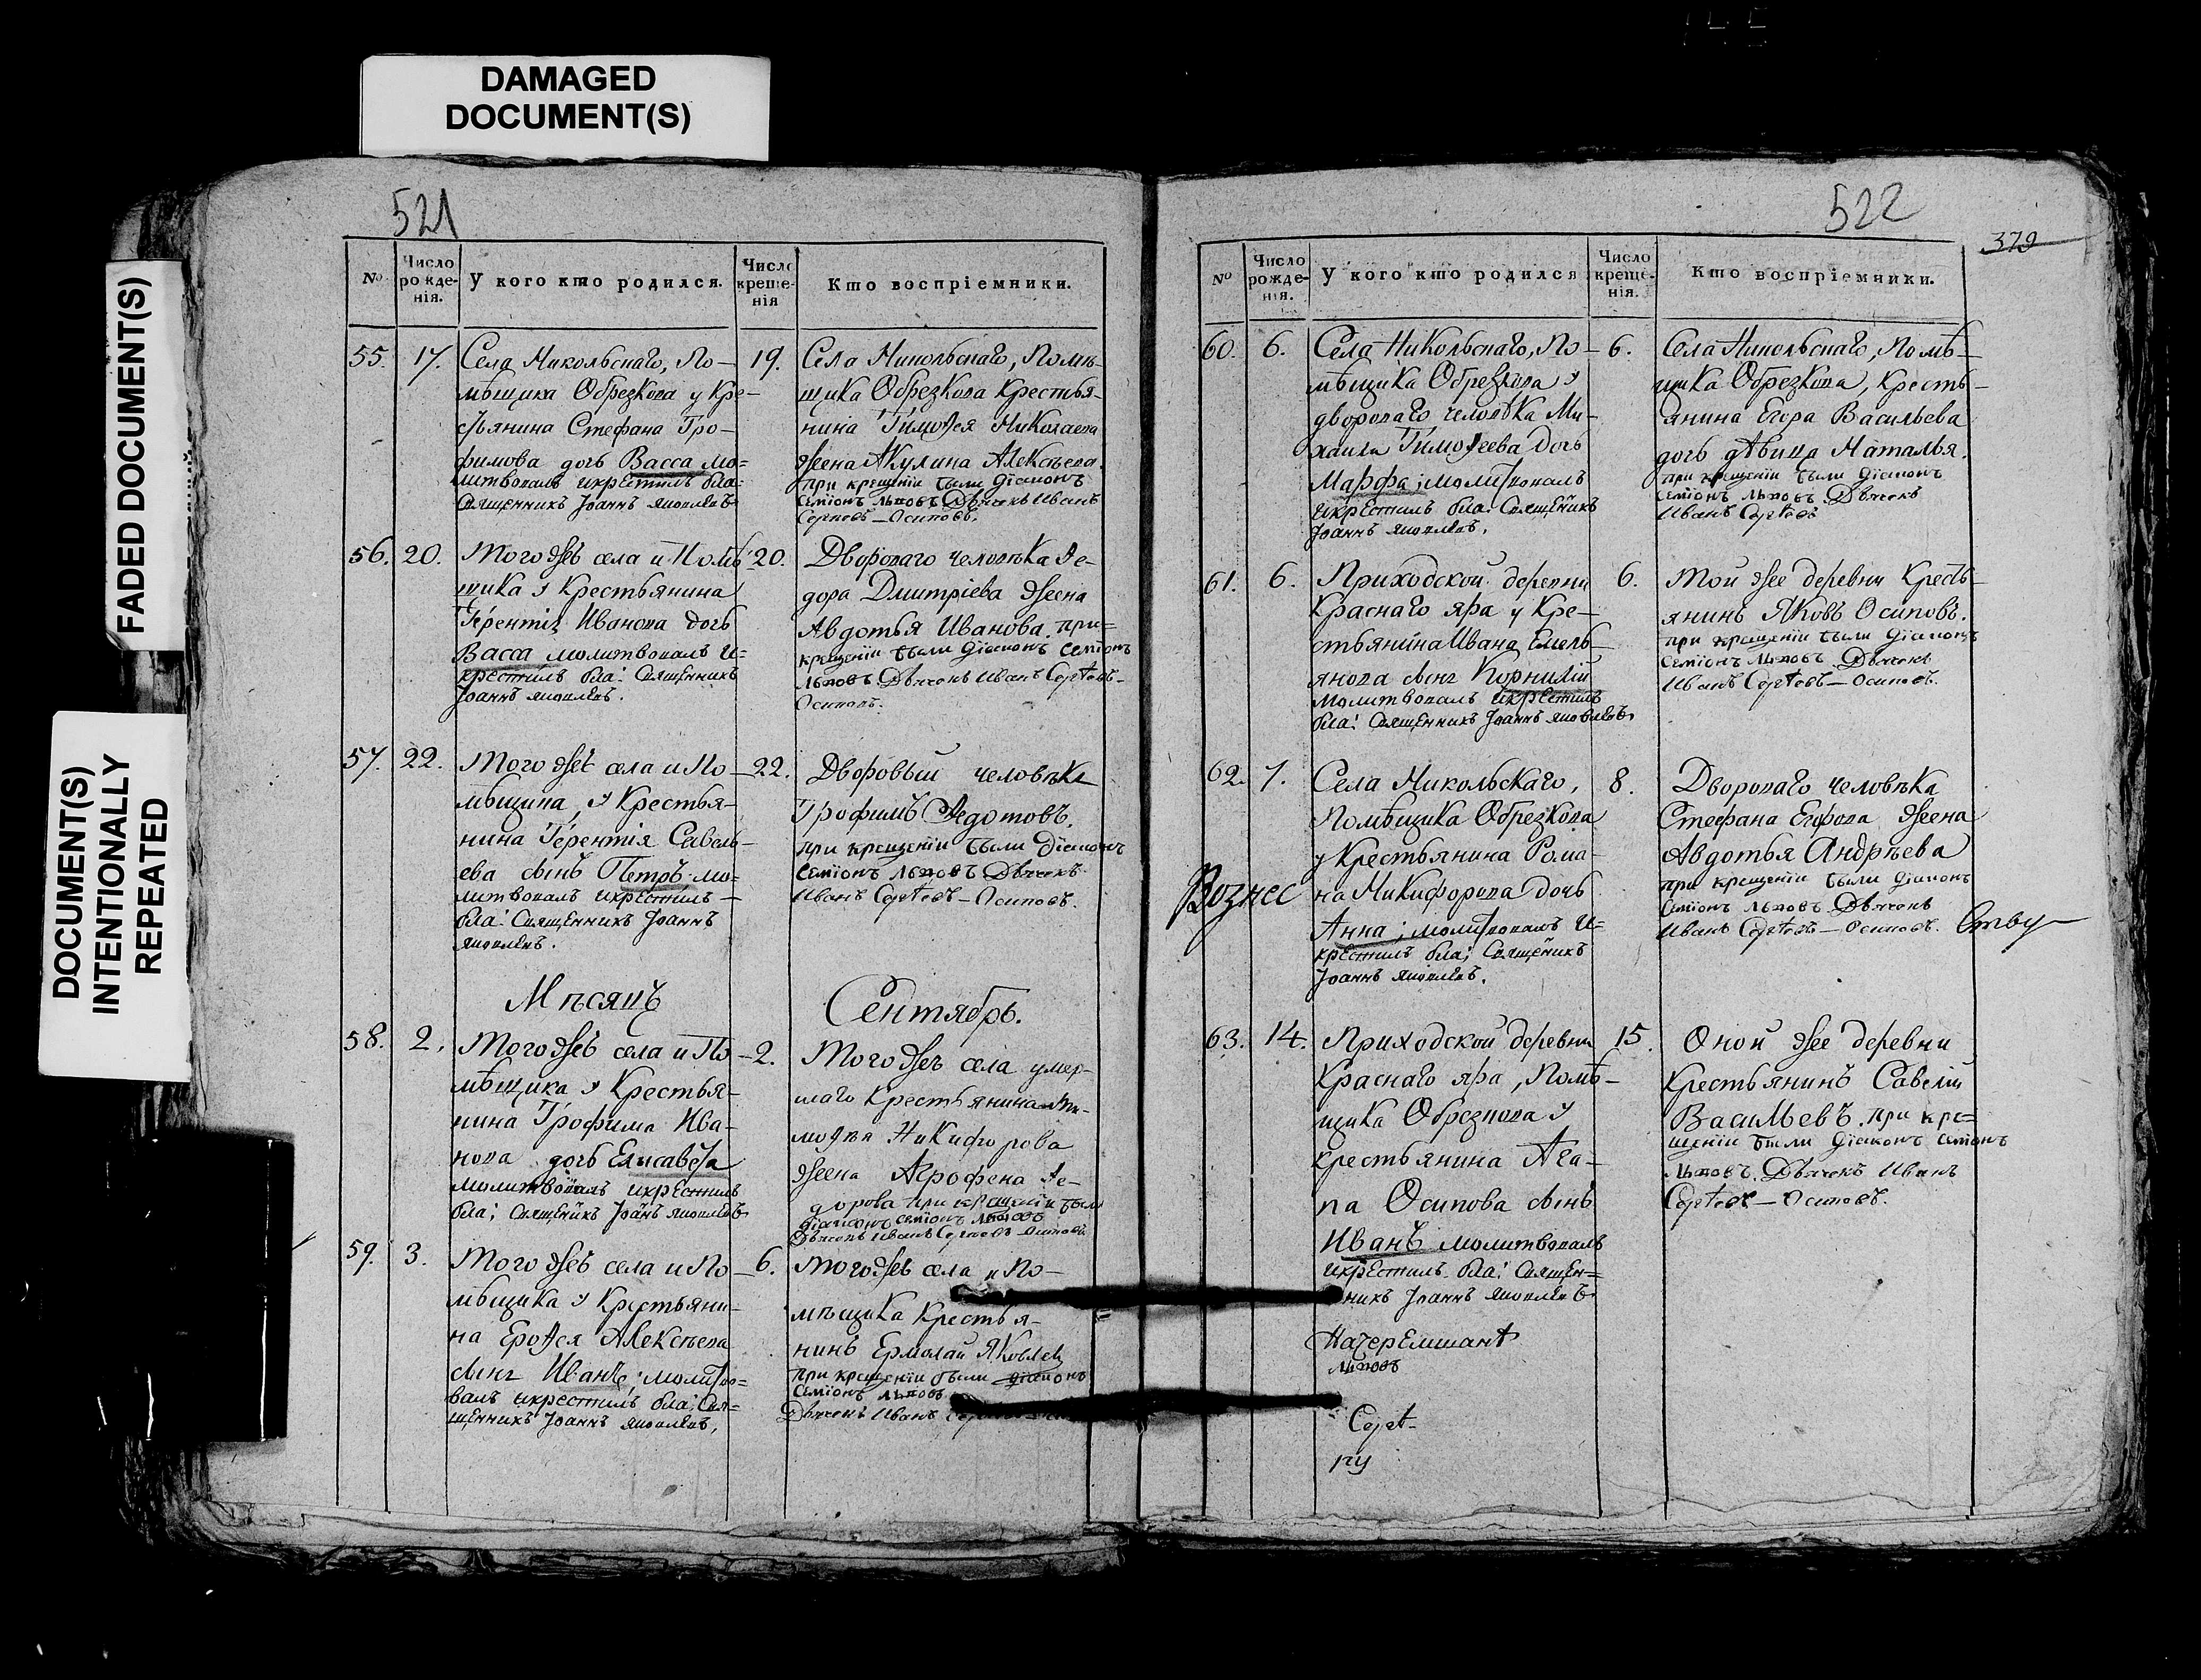 DAMAGED
DOCUMENT(S)
FADED DOCUMENT(S)
DOCUMENT(S)
INTENTIONALLY
REPEATED
521
№ Число рожде-нія. У кого кто родился. Число креще-нія Кто воспріемники.
55. 17. Села Никольскаго, По-
мѣщика Обрезкова у Кре-
стьянина Стефана Тро-
фимова дочь Васса мо=
литвовалъ икрестилъ бла:
Священникъ Іоаннъ Яковлевъ
19. Села Никольскаго, Помѣ-
щика Обрезкова Крестья-
нина Тимоѳея Николаева
жена Акулина Алексѣева.
при крещеніи были діаконъ
Семіонъ Львовъ Дьячекъ Иванъ
Сергѣевъ—Осиповъ.
56. 20. Того жъ села и Помѣ-
щика у Крестьянина
Терентія Иванова дочь
Васса молитвовалъ и=
крестилъ бла: Священникъ
Іоаннъ Яковлевъ.
20. Двороваго человѣка Ѳе-
дора Дмитріева жена
Авдотья Иванова. при=
крещеніи были діаконъ Семіонъ
Львовъ Дьячекъ Иванъ Сергѣевъ-
Осиповъ.
57. 22. Того жъ села и По-
мѣщика, у Крестья-
нина Терентія Савель-
ева сынъ Петръ мо=
литвовалъ икрестилъ
бла: Священникъ Іоаннъ
Яковлевъ.
22. Дворовый человѣкъ
Трофимъ Ѳедотовъ.
при крещеніи были діаконъ
Семіонъ Львовъ Дьячекъ
Иванъ Сергѣевъ—Осиповъ.
Мѣсяцъ Сентябрь.
58. 2. Того жъ села и По-
мѣщика у Крестья-
нина Трофима Ива-
нова дочь Елисавета
молитвовалъ икрестилъ
бла; Священикъ Іоанъ Яковлевъ
2. Того жъ села умер-
шаго Крестьянина Ти-
моѳея Никифорова
жена Агрофена Ѳе-
дорова при крещеніи были
діаконъ Семіонъ Львовъ
Дьячекъ Иванъ Сергѣевъ Осиповъ
59. 3. Того жъ села и По-
мѣщика у Крестьяни-
на Ероѳея Алексѣева
сынъ Иванъ; молитво=
валъ икрестилъ бла; Свя-
щенникъ Іоаннъ Яковлевъ,
6. Того жъ села и По-
мѣщика Крестья-
нинъ Ермолай Яковлев
при крещеніи были діаконъ
Семіонъ Львовъ
Дьячекъ Иванъ
522
379
№ Число рожде-нія. У кого кто родился Число креще-нія. Кто воспріемники.
60. 6. Села Никольскаго, По-
мѣщика Обрезкова у
двороваго человѣка Ми-
хаила Тимоѳеева дочь
Марфа; молитвовалъ
икрестилъ бла: Священикъ
Іоаннъ Яковлевъ.
6. Села Никольскаго, Помѣ-
щика Обрезкова, Кресть-
янина Егора Васильева
дочь дѣвица Наталья.
при крещеніи были діаконъ
Семіонъ Львовъ Дьячекъ
Иванъ Сергѣевъ
61. 6. Приходской деревни
Краснаго яра у Кре-
стьянина Ивана Емель-
янова сынъ Корнилій
молитвовалъ икрестилъ
бла: Священникъ Іоаннъ Яковлевъ
6. Той жее деревни Кресть-
янинъ Яковъ Осиповъ.
при крещеніи были діаконъ
Семіонъ Львовъ Дьячекъ
Иванъ Сергѣевъ—Осиповъ.
62. 7. Села Никольскаго,
Помѣщика Обрезкова
у Крестьянина Рома-
на Никифорова дочь
Анна; молитвовалъ и=
крестилъ бла; Священикъ
Іоаннъ Яковлевъ.
8. Двороваго человѣка
Стефана Егорова жена
Авдотья Андрѣева
при крещеніи были діаконъ
Семіонъ Львовъ Дьячекъ
Иванъ Сергѣевъ—Осиповъ.
Вознес
Ству
63. 14. Приходской деревни
Краснаго яра, Помѣ-
щика Обрезкова у
крестьянина Ага-
па Осипова сынъ
Иванъ молитвовалъ
икрестилъ бла: Священ=
никъ Іоаннъ Яковлевъ
15. Оной жее деревни
Крестьянинъ Савелій
Васильевъ. при кре=
щеніи были діаконъ Семіонъ
Львовъ. Дьячекъ Иванъ
Сергѣевъ—Осиповъ.
Львовъ
Сергѣ-